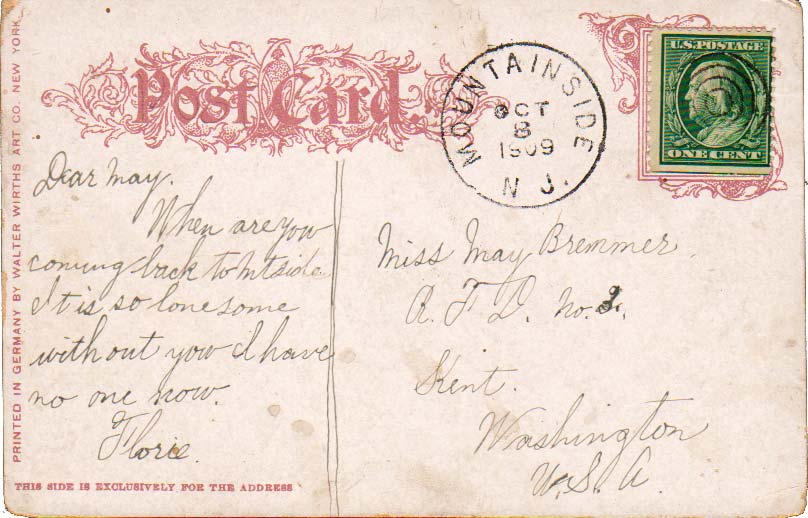 Post Card.
MOUNTAINSIDE
OCT
8
1909
N J.
U.S. POSTAGE
ONE CENT
Dear May.
When are you
coming back to Mtside
It is so lonesome
without you I have
no one now.
Florie.
Miss May Bremmer.
R. F. D. No. 2.
Kent.
Washington
U.S.A.
PRINTED IN GERMANY BY WALTER WIRTHS ART CO. NEW YORK
THIS SIDE IS EXCLUSIVELY FOR THE ADDRESS